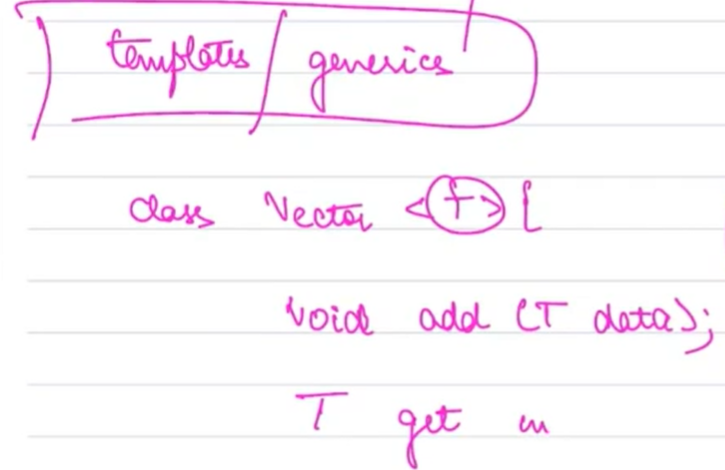 templates / generics
class Vector <T> {
void add (T data);
T get in